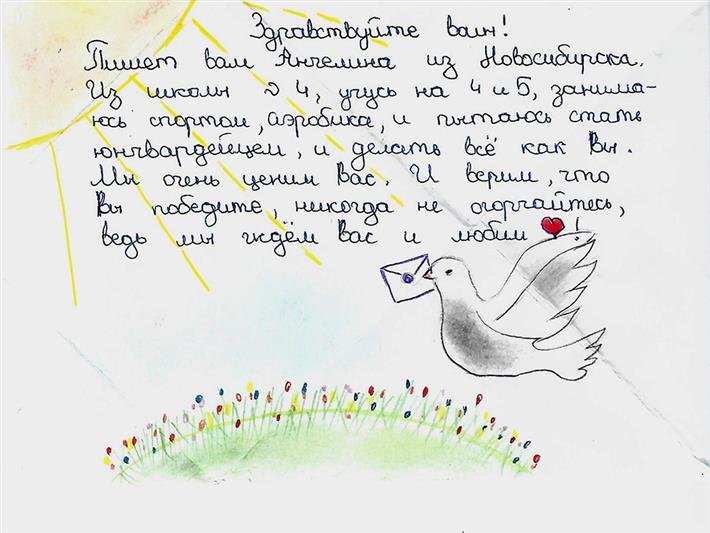 Здравствуйте воин!
Пишет вам Ангелина из Новосибирска.
Из школы 24, учусь на 4 и 5, занима-
юсь спортом, аэробика, и пытаюсь стать
юнгвардейцем, и делать всё как Вы.
Мы очень ценим Вас. И верим, что
Вы победите, никогда не огорчайтесь,
ведь мы ждём Вас и любим !